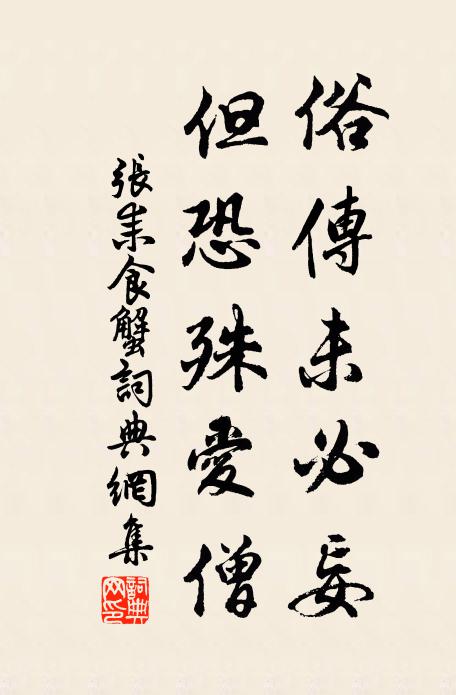 俗傳未必妄
但恐殊愛僧
張耒食蟹詞典網集
詞典網印